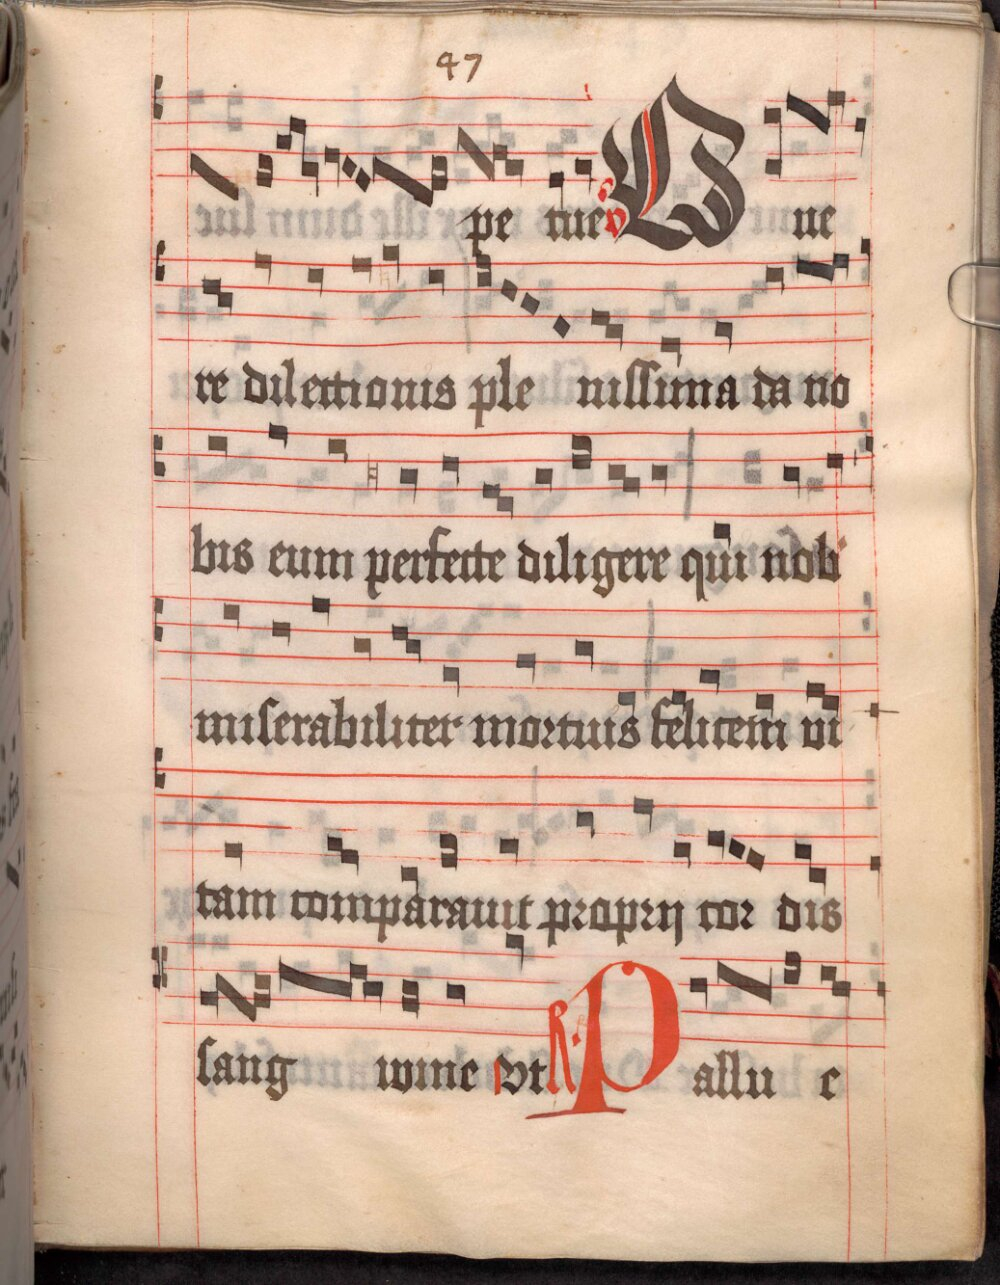 47
pe tue℣ Ve ne
re dilectionis ple nissima da no
bis eum perfecte diligere qui nob
miserabiliter mortuis felicem vi
tam comparauit proprij cor dis
sang wine Vt ℟. Passu e